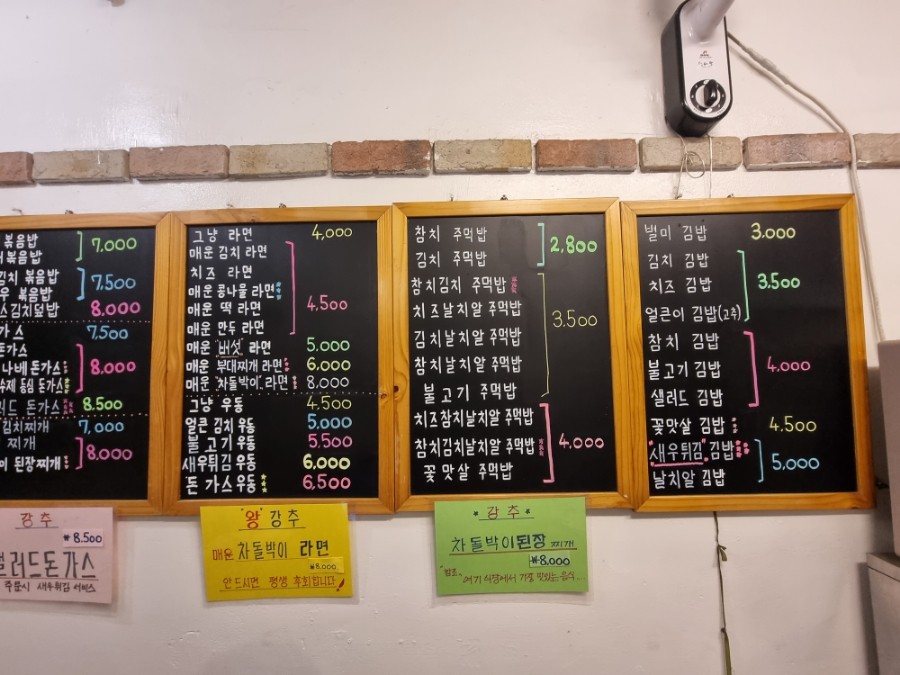 볶음밥 7,000
볶음밥
김치 볶음밥 7,500
우 볶음밥
스김치덮밥 8,000
가스 7,500
돈가스
나베 돈가스 8,000
수제 등심 돈가스
러드 돈가스 8.500
김치찌개 7,000
찌개 8,000
이 된장찌개
그냥 라면 4,000
매운 김치 라면
치즈 라면
매운 콩나물 라면
매운 떡 라면 4,500
매운 만두 라면
매운 "버섯" 라면 5,000
매운 부대찌개 라면 6,000
매운 "차돌박이" 라면 8,000
그냥 우동 4.500
얼큰 김치 우동 5,000
불고기 우동 5,500
새우튀김 우동 6,000
돈가스 우동 6,500
참치 주먹밥 2,800
김치 주먹밥
참치김치 주먹밥
치즈날치알 주먹밥 3.500
김치날치알 주먹밥
참치날치알 주먹밥
불고기 주먹밥
치즈참치날치알 주먹밥
참치김치날치알 주먹밥 4.000
꽃맛살 주먹밥
별미 김밥 3.000
김치 김밥
치즈 김밥 3.500
얼큰이 김밥(고추)
참치 김밥
불고기 김밥 4.000
샐러드 김밥
꽃맛살 김밥 4.500
"새우튀김" 김밥 5,000
날치알 김밥
강추
₩8.500
러드돈가스
주문시 새우튀김 서비스
"왕" 강추
매운 차돌박이 라면
₩8,000
안드시면 평생 후회합니다!
* 강추 *
차돌박이된장 찌개
₩8,000
여기 식당에서 가장 맛있는 음식...